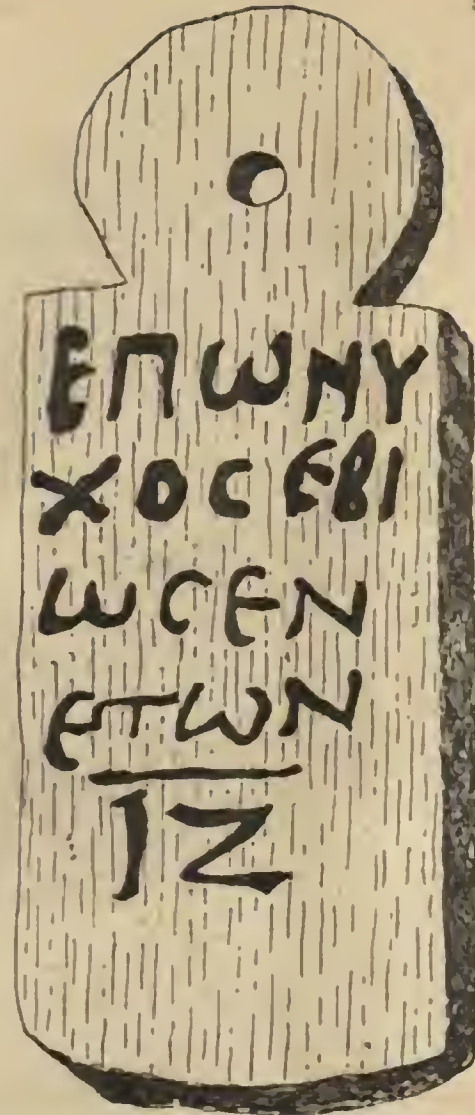 ΕΠωΝΥ
ΧΟϹΕΒΙ
ωϹΕΝ
ΕΤωΝ
ΙΖ